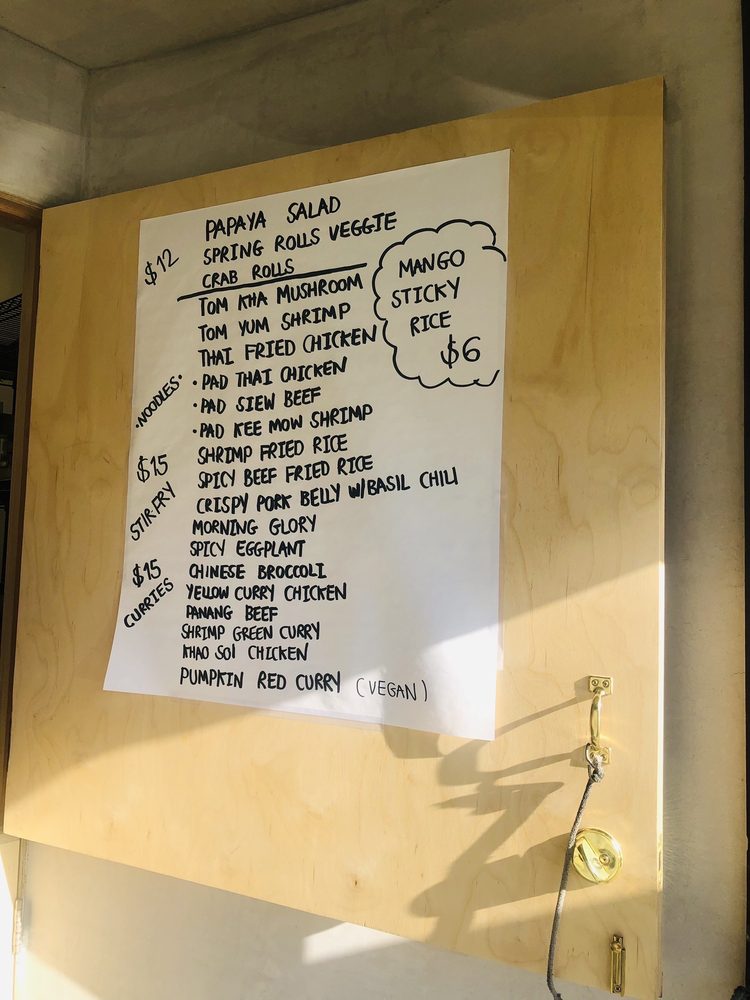 $12
PAPAYA SALAD
SPRING ROLLS VEGGIE
CRAB ROLLS
MANGO
STICKY
RICE
$6
TOM KHA MUSHROOM
TOM YUM SHRIMP
THAI FRIED CHICKEN
•NOODLES•
•PAD THAI CHICKEN
•PAD SIEW BEEF
•PAD KEE MOW SHRIMP
$15
STIR FRY
SHRIMP FRIED RICE
SPICY BEEF FRIED RICE
CRISPY PORK BELLY W/BASIL CHILI
MORNING GLORY
SPICY EGGPLANT
CHINESE BROCCOLI
$15
CURRIES
YELLOW CURRY CHICKEN
PANANG BEEF
SHRIMP GREEN CURRY
KHAO SOI CHICKEN
PUMPKIN RED CURRY (VEGAN)